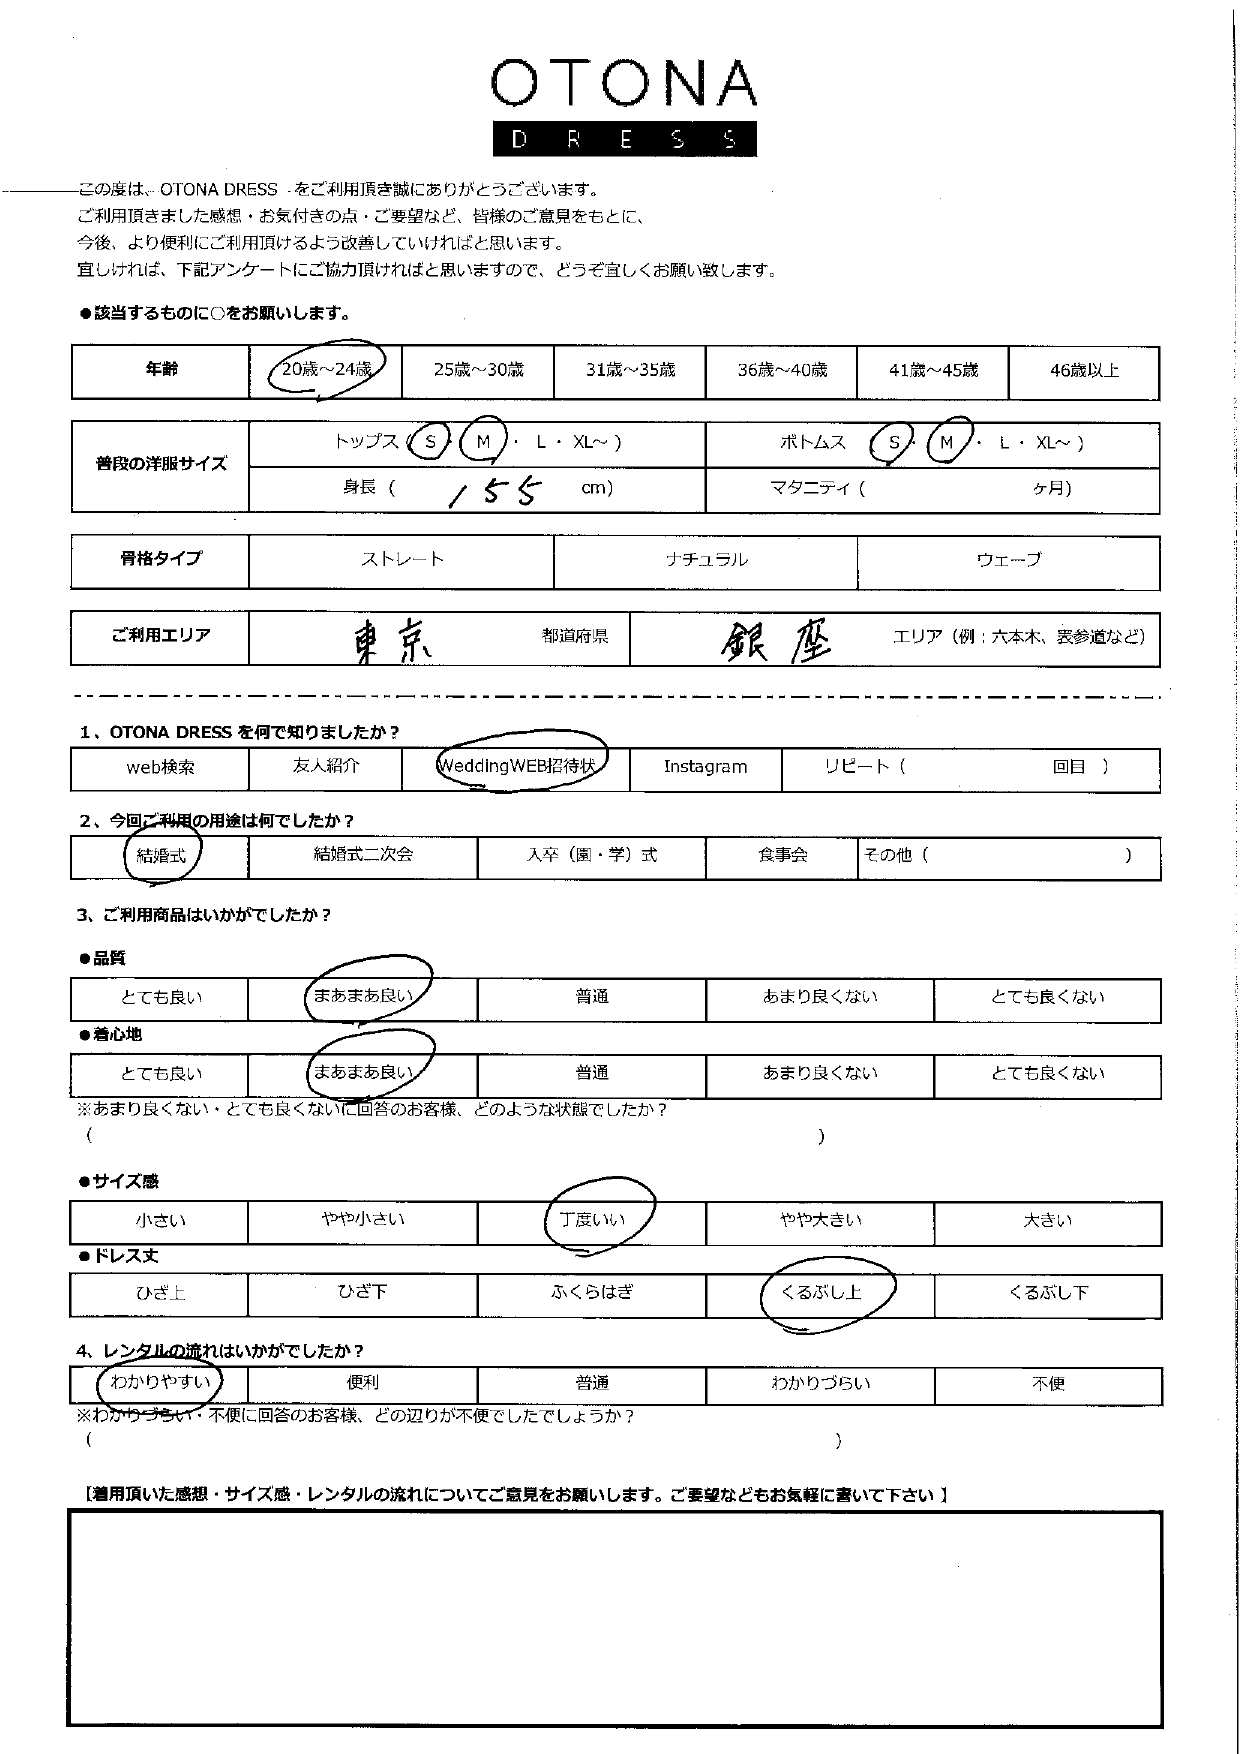 OTONA
DRESS
この度は、OTONA DRESS をご利用頂き誠にありがとうございます。
ご利用頂きました感想・お気付きの点・ご要望など、皆様のご意見をもとに、
今後、より便利にご利用頂けるよう改善していければと思います。
宜しければ、下記アンケートにご協力頂ければと思いますので、どうぞ宜しくお願い致します。
●該当するものに○をお願いします。
年齢 20歳～24歳 25歳～30歳 31歳～35歳 36歳～40歳 41歳～45歳 46歳以上
普段の洋服サイズ トップス ( S ・ M ・ L ・ XL～ ) ボトムス ( S ・ M ・ L ・ XL～ )
身長 ( 155 cm) マタニティ ( ヶ月)
骨格タイプ ストレート ナチュラル ウェーブ
ご利用エリア 東京 都道府県 銀座 エリア（例：六本木、表参道など）
1、OTONA DRESS を何で知りましたか？
web検索 友人紹介 WeddingWEB招待状 Instagram リピート（ 回目 ）
2、今回ご利用の用途は何でしたか？
結婚式 結婚式二次会 入卒（園・学）式 食事会 その他（ ）
3、ご利用商品はいかがでしたか？
●品質
とても良い まあまあ良い 普通 あまり良くない とても良くない
●着心地
とても良い まあまあ良い 普通 あまり良くない とても良くない
※あまり良くない・とても良くないに回答のお客様、どのような状態でしたか？
（ ）
●サイズ感
小さい やや小さい 丁度いい やや大きい 大きい
●ドレス丈
ひざ上 ひざ下 ふくらはぎ くるぶし上 くるぶし下
4、レンタルの流れはいかがでしたか？
わかりやすい 便利 普通 わかりづらい 不便
※わかりづらい・不便に回答のお客様、どの辺りが不便でしたでしょうか？
（ ）
【着用頂いた感想・サイズ感・レンタルの流れについてご意見をお願いします。ご要望などもお気軽に書いて下さい 】